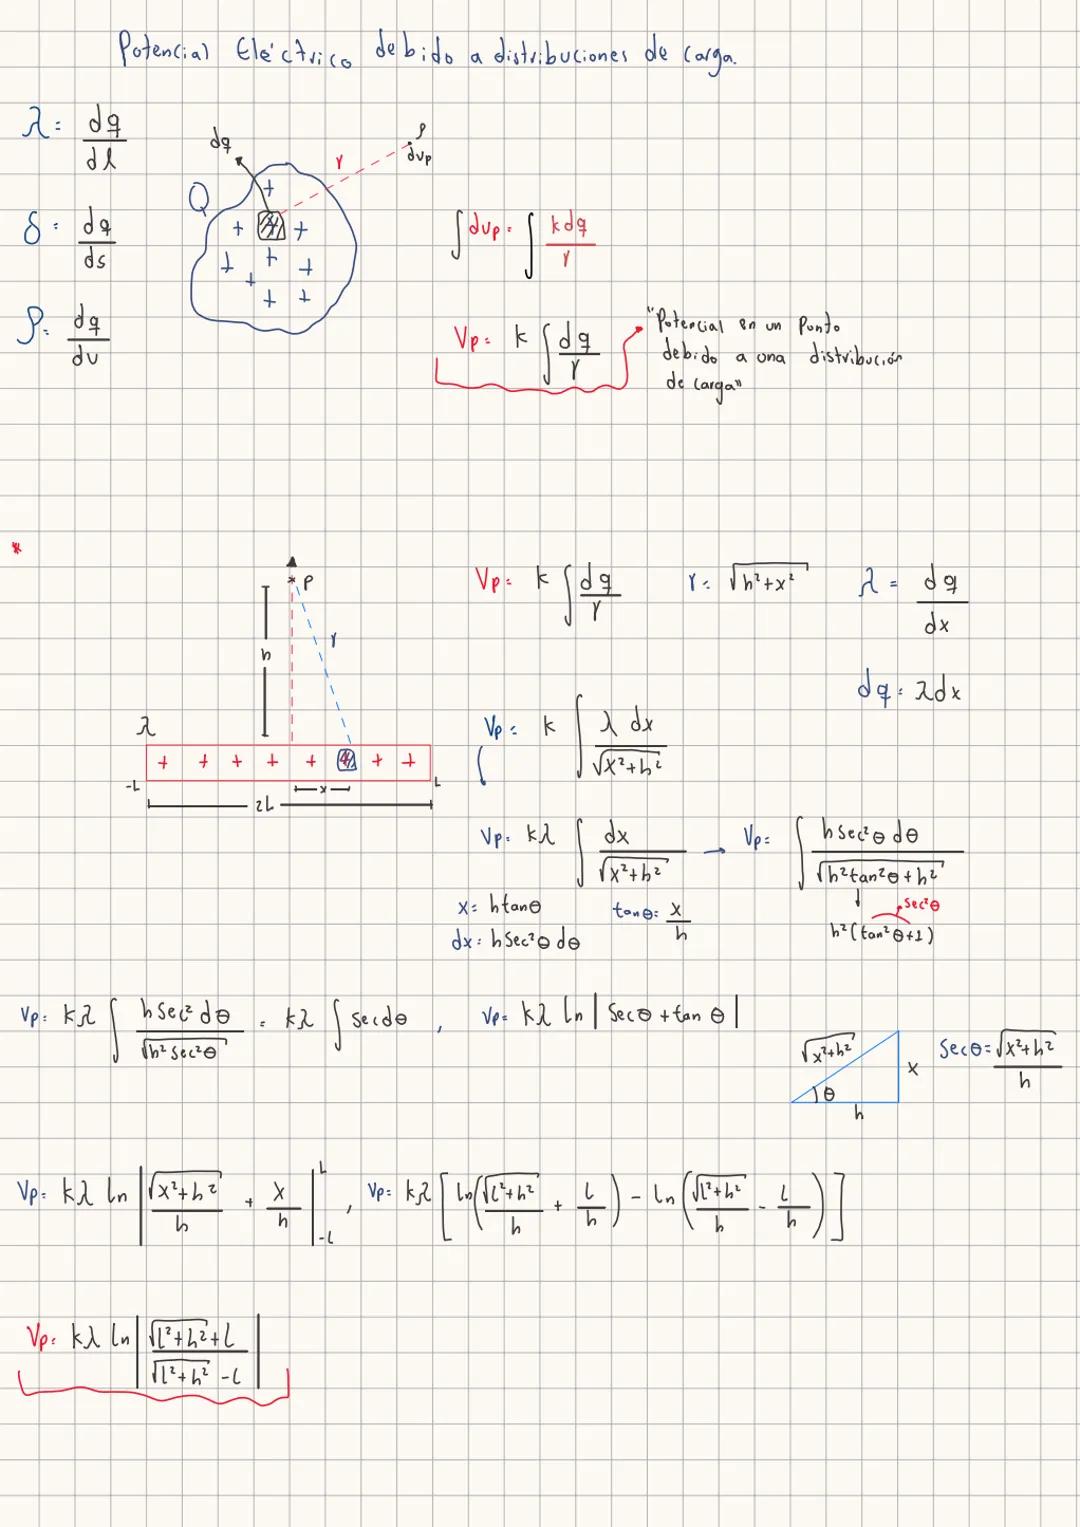 Potencial Eléctrico debido a distribuciones de carga.
λ = dq/dl
dq
r
P
dvp
Q
δ = dq/ds
∫dvp = ∫ kdq/r
ρ = dq/dv
Vp = k ∫ dq/r
"Potencial en un Punto
debido a una distribución
de carga"
*
P
h
r
λ
-L
L
x
2L
Vp = k ∫ dq/r
r = √(h²+x²)
λ = dq/dx
dq = λdx
Vp = k ∫ λ dx/√(x²+h²)
Vp = kλ ∫ dx/√(x²+h²) → Vp = ∫ hsec²θ dθ/√(h²tan²θ+h²)
x = htanθ
tanθ = x/h
sec²θ
dx = hsec²θ dθ
h²(tan²θ+1)
Vp = kλ ∫ hsec² dθ/√(h²sec²θ) = kλ ∫ secdθ , Vp = kλ ln|secθ + tan θ|
√(x²+h²)
x
θ
h
Secθ = √(x²+h²)/h
Vp = kλ ln|√(x²+h²)/h + x/h| L -L , Vp = kλ [ln(√(L²+h²)/h + L/h) - ln(√(L²+h²)/h - L/h)]
Vp = kλ ln|(√(L²+h²)+L)/(√(L²+h²)-L)|